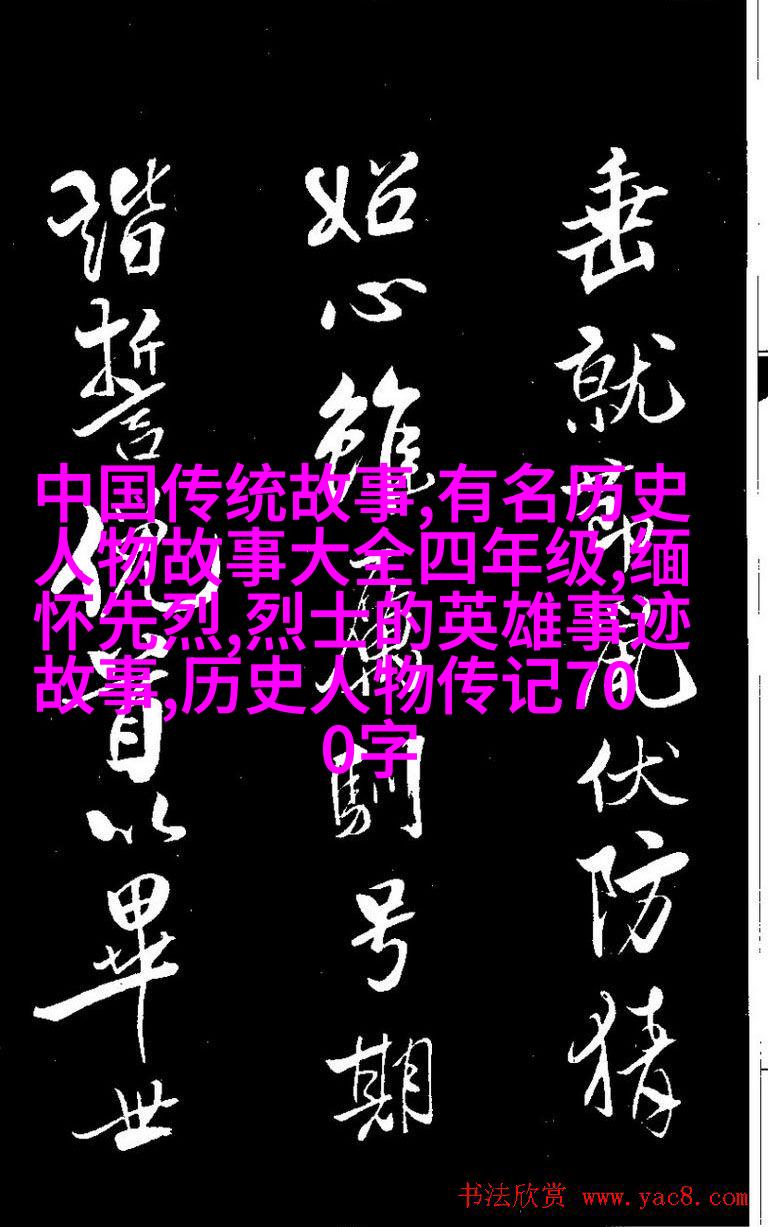 中国传统故事,有名历史
人物故事大全四年级,缅
怀先烈,烈士的英雄事迹
故事,历史人物传记70
0字
垂就伏防猜
心雖馴号期
誓首以畢世
书法欣赏 www.yac8.com